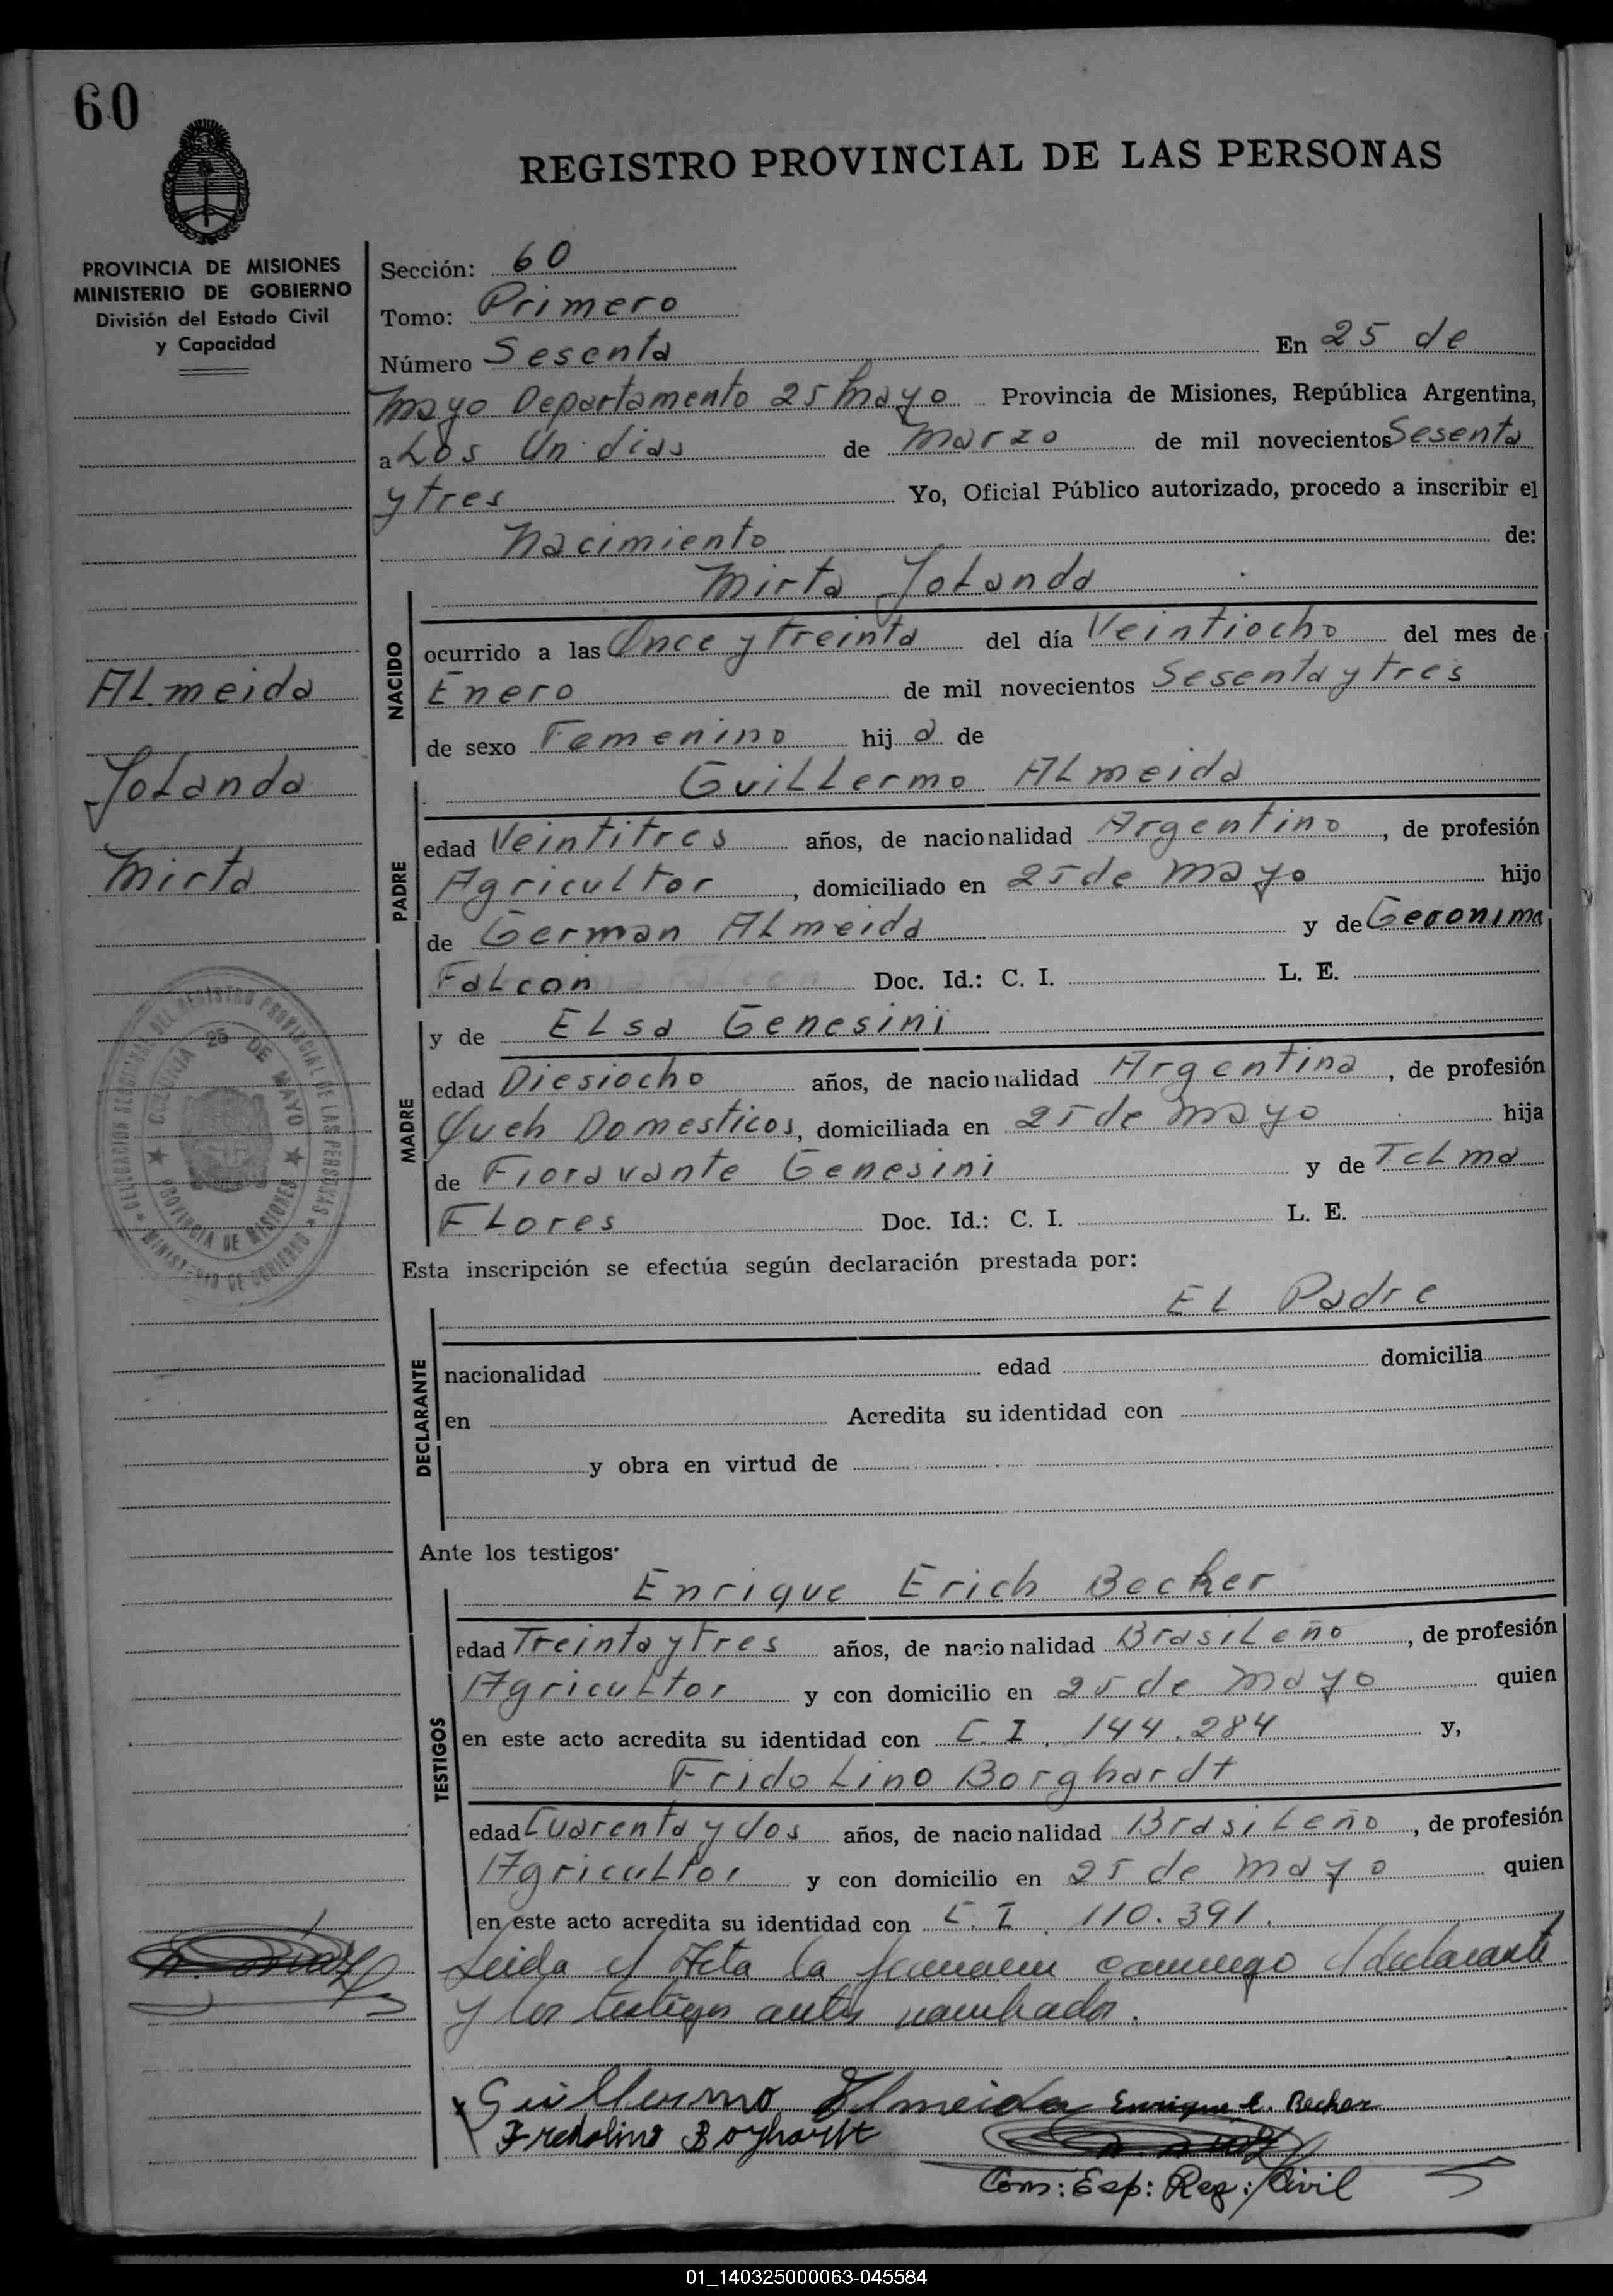 60
REGISTRO PROVINCIAL DE LAS PERSONAS
PROVINCIA DE MISIONES
MINISTERIO DE GOBIERNO
División del Estado Civil
y Capacidad
Sección: 60
Tomo: Primero
Número Sesenta En 25 de
Mayo Departamento 25 Mayo Provincia de Misiones, República Argentina,
a Los Un dias de Marzo de mil novecientos Sesenta
y tres Yo, Oficial Público autorizado, procedo a inscribir el
Nacimiento de:
Mirta Jolanda
NACIDO
ocurrido a las Once y treinta del día Veintiocho del mes de
Enero de mil novecientos Sesenta y tres
de sexo Femenino hij a de
Almeida
Jolanda
Mirta
Guillermo Almeida
PADRE
edad Veintitres años, de nacionalidad Argentino, de profesión
Agricultor, domiciliado en 25 de Mayo hijo
de German Almeida y de Geronima
Falcon Doc. Id.: C. I. L. E.
y de Elsa Genesini
MADRE
edad Diesiocho años, de nacionalidad Argentina, de profesión
Queh Domesticos, domiciliada en 25 de Mayo hija
de Fioravante Genesini y de Telma
Flores Doc. Id.: C. I. L. E.
DELEGACION DEL REGISTRO PROVINCIAL DE LAS PERSONAS
COLONIA 25 DE MAYO
PROVINCIA DE MISIONES
MINISTERIO DE GOBIERNO
Esta inscripción se efectúa según declaración prestada por:
El Padre
DECLARANTE
nacionalidad edad domicilia
en Acredita su identidad con
y obra en virtud de
Ante los testigos
Enrique Erich Becher
TESTIGOS
edad Treinta y tres años, de nacionalidad Brasileño, de profesión
Agricultor y con domicilio en 25 de Mayo quien
en este acto acredita su identidad con C. I. 144.284 y,
Fridolino Borghardt
edad Cuarenta y dos años, de nacionalidad Brasileño, de profesión
Agricultor y con domicilio en 25 de Mayo quien
en este acto acredita su identidad con C. I. 110.391.
Leida el Acta la firmaron conmigo el declarante
y los testigos antes nombrados.
Guillermo Almeida Enrique E. Becher
Fridolino Borghardt
Com: Esp: Reg: Civil
01_140325000063-045584